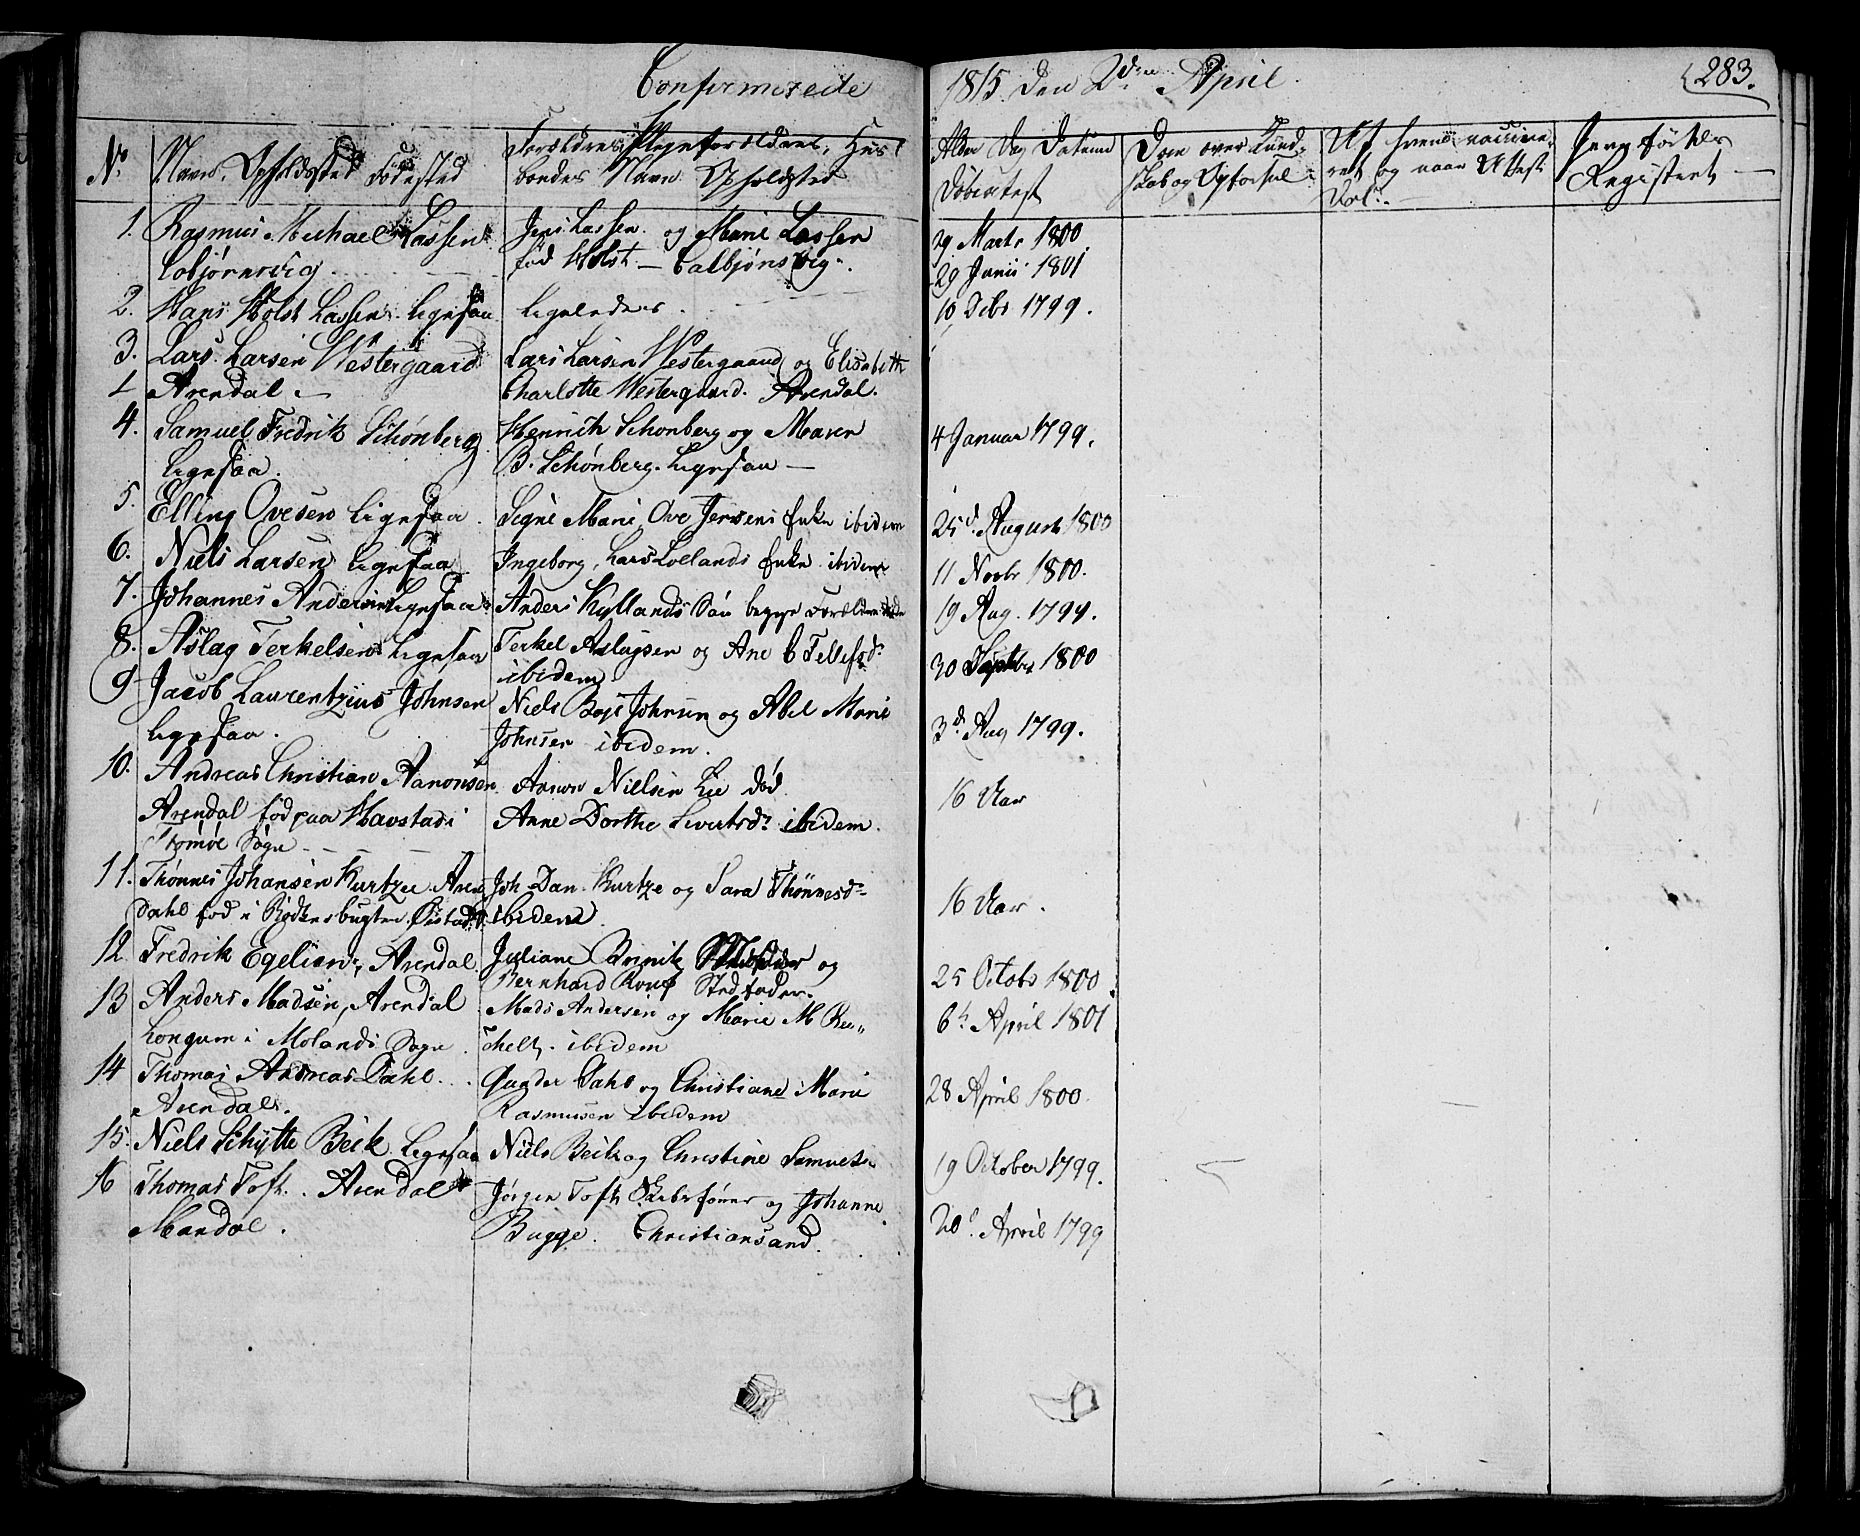 Confirmerede
1815 den 2den April
283.
No
Navn, Opholdssted Fødested
Forældres, Plejeforældres, Hus
bondes Navn Opholdsted
Alder Dag Datum
Døbeattest
Dom over Kund-
skab og Opførsel
Af hvem vaccine-
ret og naar Attest
Jevnførtes
Registeret
1. Rasmus Michael Lassen
Colbjørnsvig
Jens Lassen og Marie Lassen
fød Holst - Calbjønsvig
29 Marts 1800
29 Junii 1801
2. Hans Holst Lassen ligesaa
ligeledes
10 Debr 1799.
3. Lars Larsen Westergaard
Arendal
Lars Larsen Westergaard og Elisabeth
Charlotte Westergaard. Arendal.
4. Samuel Fredrik Schønberg
ligesaa.
Henrich Schonberg og Maren
B. Schønberg. ligesaa
4 Januar 1799.
5. Elling Ovesen ligesaa
Signe Marie Ove Jensens Enke ibidem
25d. August 1800
6. Niels Larsen ligesaa
Ingeborg, Lars Lollands Enke ibidem
11 Novbr 1800.
7. Johannes Andersen ligesaa
Anders Kyllands Søn begge Forældre døde
19 Aug. 1799.
8. Aslag Terkelsen ligesaa
Terkel Aslagsen og Ane C Tellefsd.
ibidem
30 Septbr 1800
9 Jacob Laurentzius Johnsen
ligesaa.
Niels Boje Johnsen og Abel Marie
Johnsen ibidem.
3d. Aug 1799.
10. Andreas Christian Aanonsen
Arendal fød paa Havstad i
Tromøe Sogn
Aanon Nielsen Lie død
Anne Dorthe Sivertsdr ibidem.
16 Aar
11. Thønnes Johansen Kurtze Aren
dahl fød i Østad
Joh Dan. Kurtze og Sara Thønnesd.
ibidem
16 Aar.
12. Fredrik Egelien, Arendal
Juliane og
Bernhard Stedfader.
25 Octobr 1800
13 Anders Madsen, Arendal
Longum i Molands Sogn
Mads Andersen og Marie M
ibidem
6h April 1801
14 Thomas Andreas Dahl
Arendal.
Gunder Dahl og Christiane Marie
Rasmussen ibidem
28 April 1800.
15. Niels Schytte Beck ligesaa
Niels Beck og Christine Samuels
19 October 1799.
16 Thomas Toft. Arendal
Mandal.
Jørgen Toft Skibsfører og Johanne
Bugge. Christiansand.
20d. April 1799